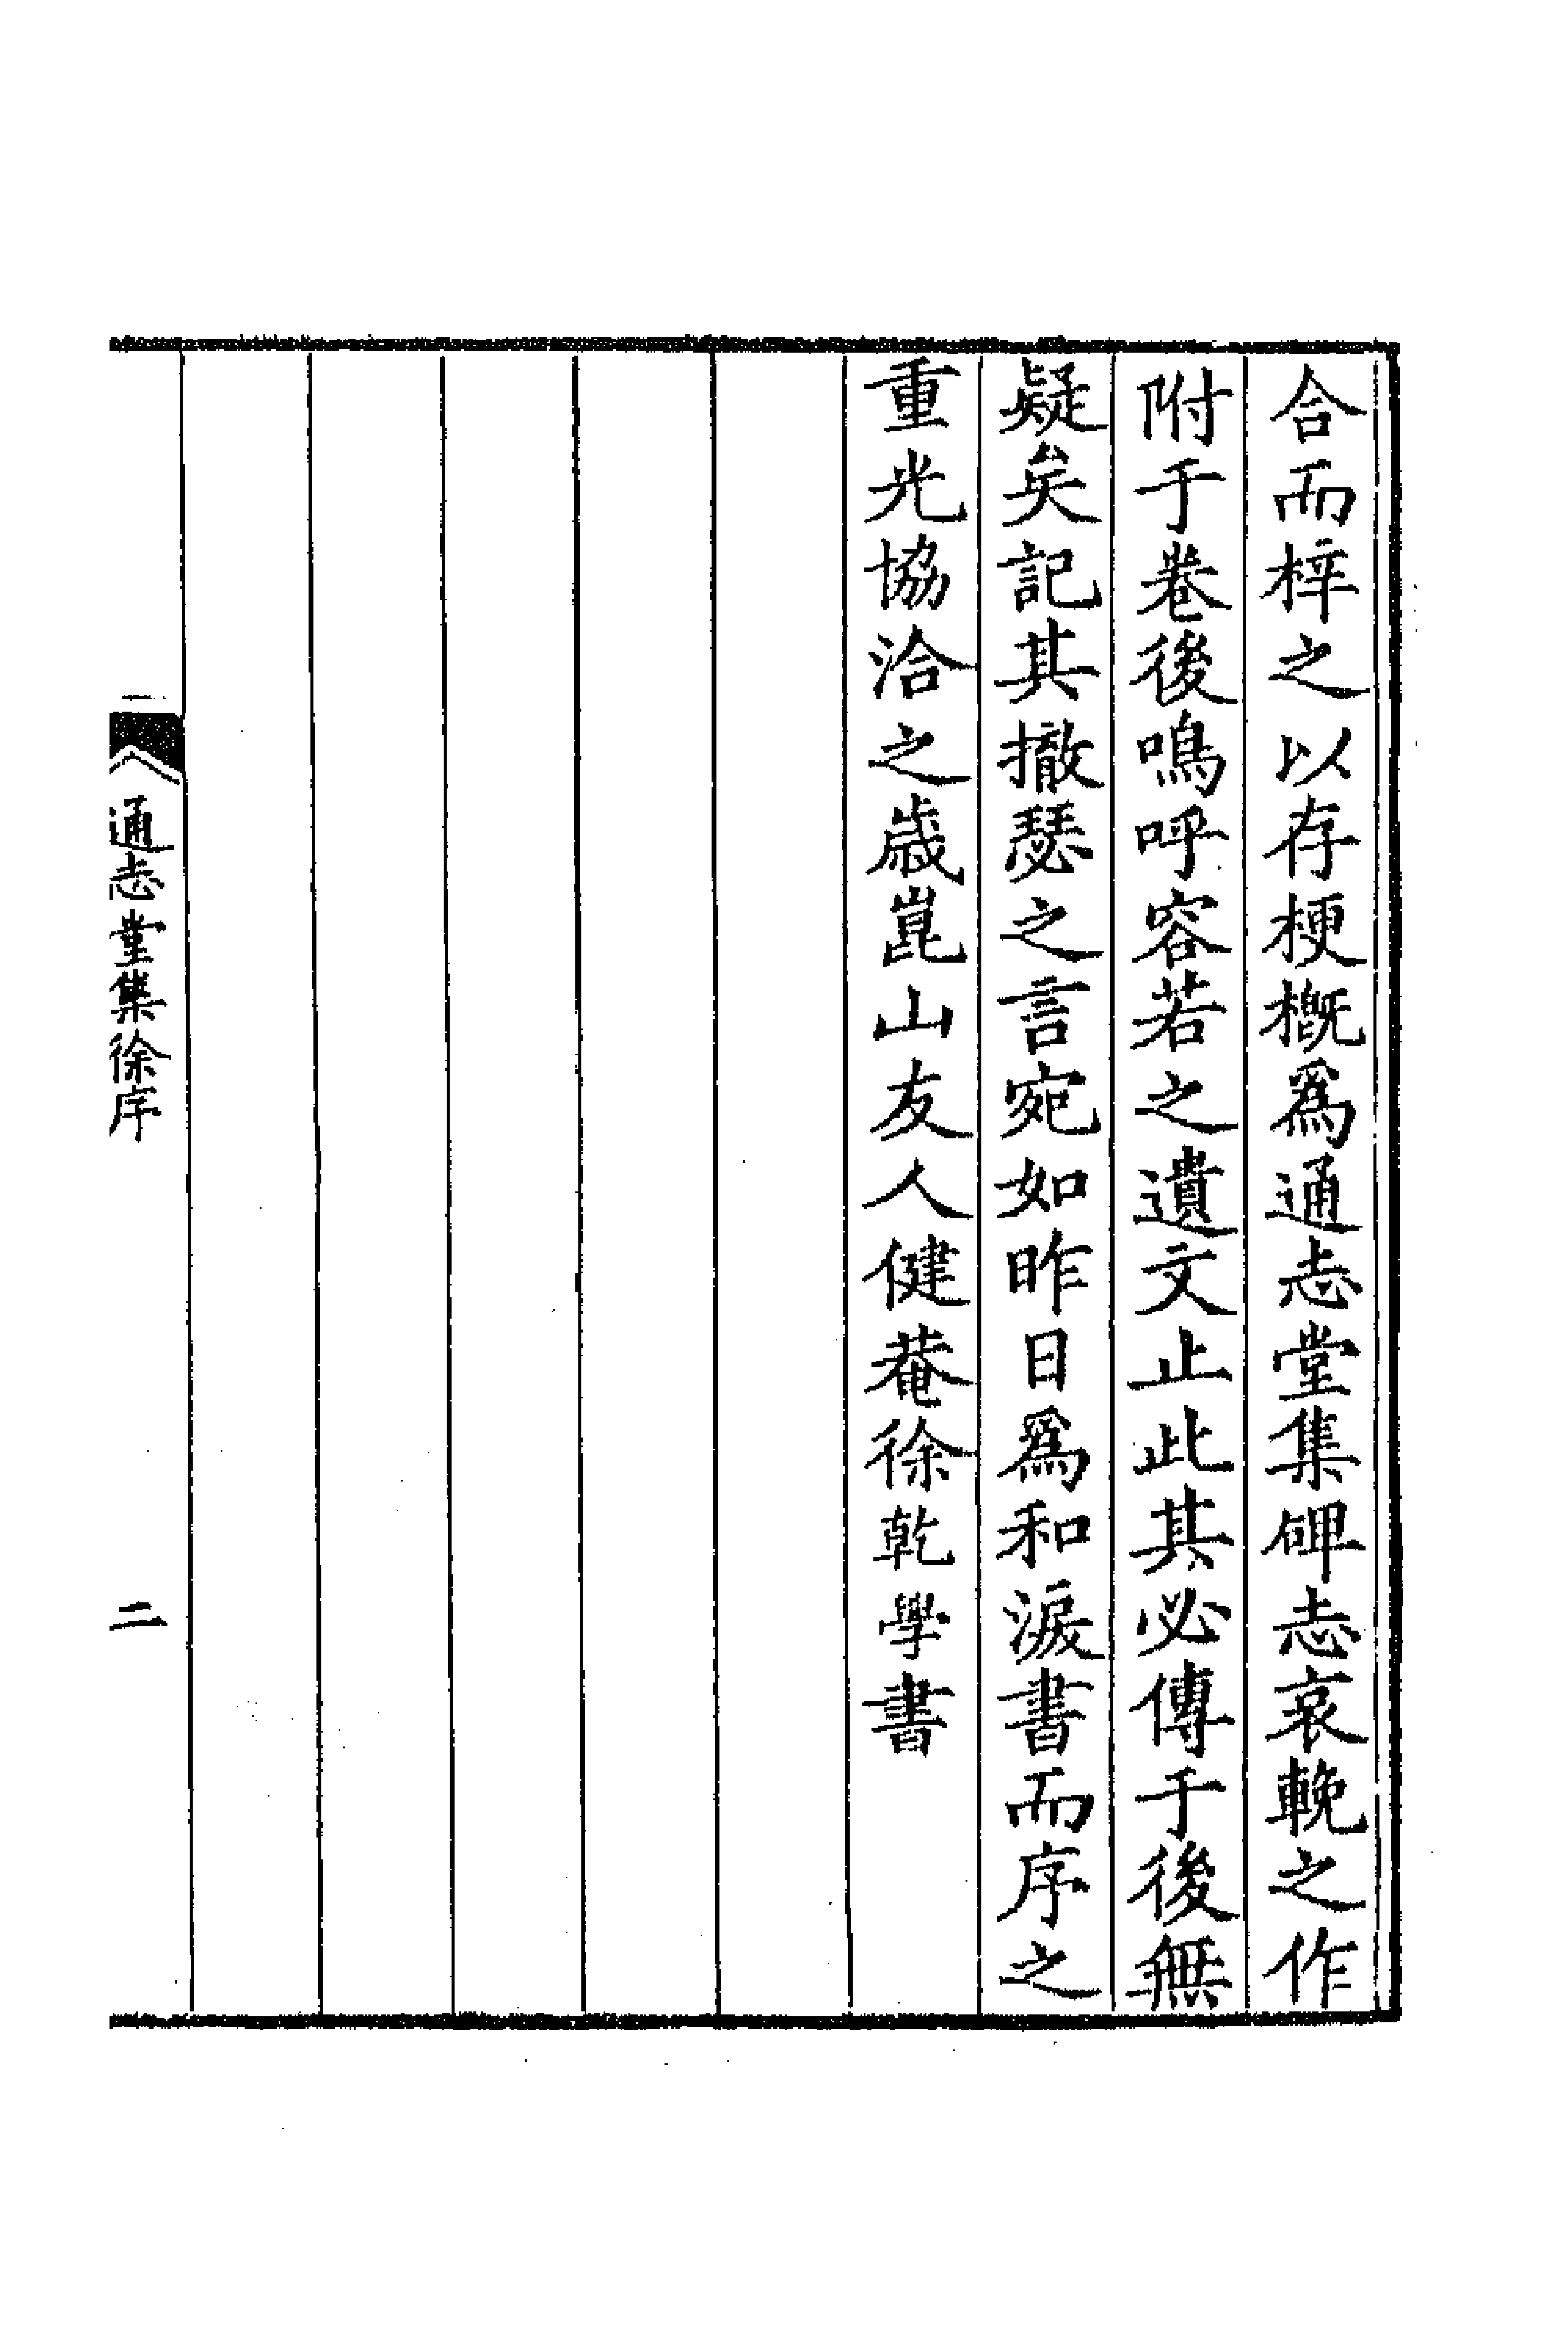 合而梓之以存梗槪爲通志堂集碑志哀輓之作
附于卷後嗚呼容若之遺文止此其必傳于後無
疑矣記其撤瑟之言宛如昨日爲和淚書而序之
重光協洽之歲崑山友人健菴徐乾學書
通志堂集徐序
二